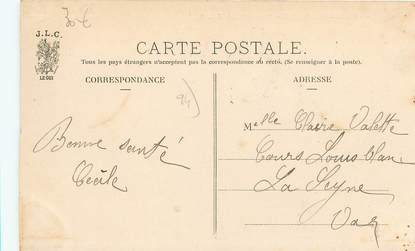 30€
J.L.C.
LE GUI
CARTE POSTALE.
Tous les pays étrangers n'acceptent pas la correspondance au recto. (Se renseigner à la poste).
CORRESPONDANCE
ADRESSE
94)
Melle Claire Valette
Cours Louis Blanc
La Seyne
Var
Bonne santé
Cécile